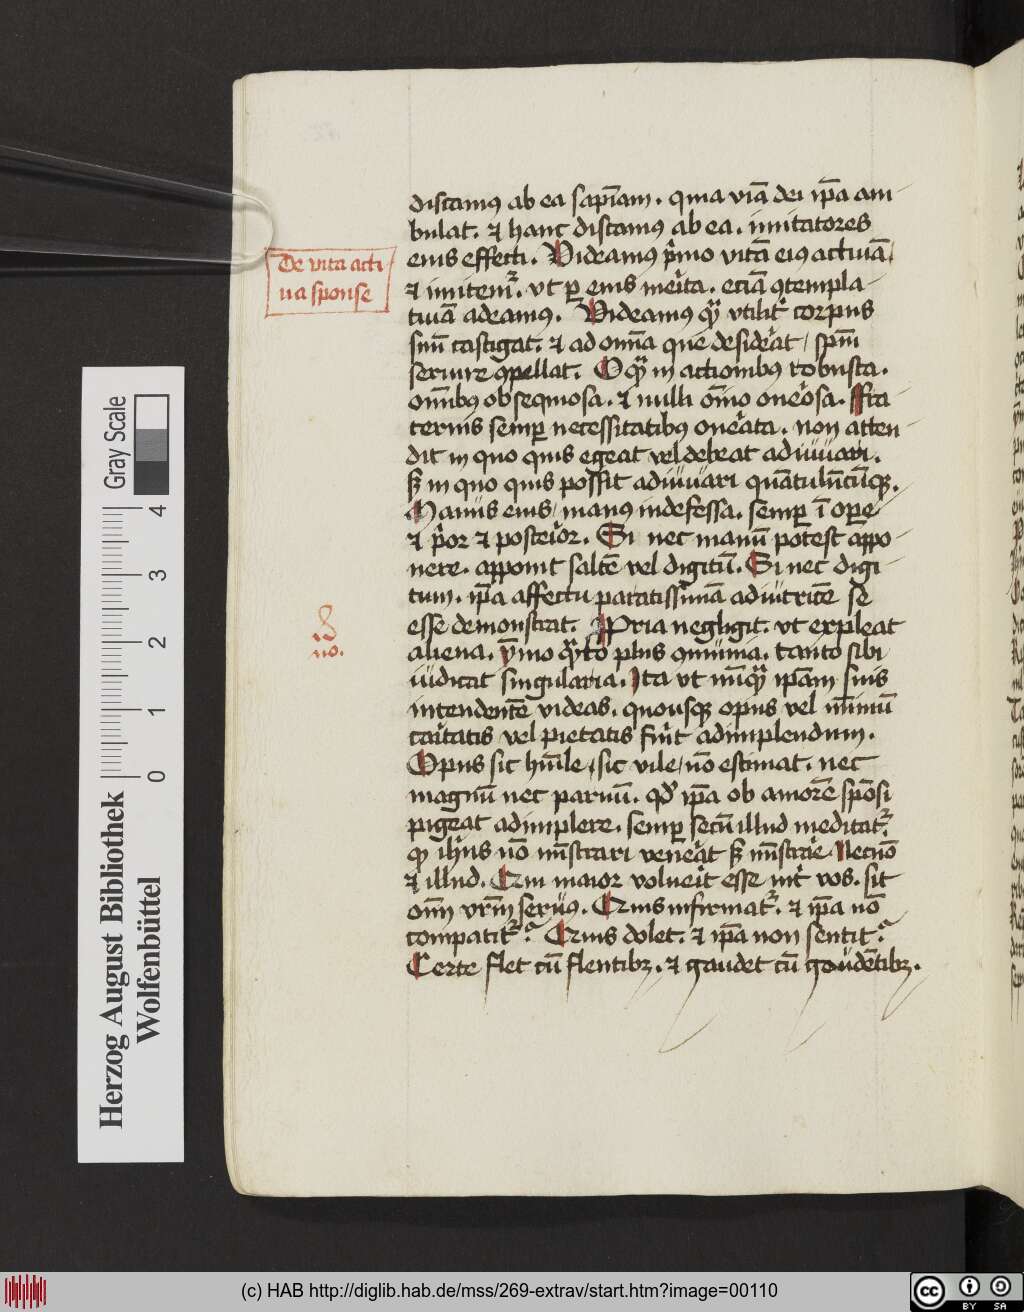 discamus ab ea sapīam. quia viā dei ip̄a am
bulat. et hanc discamus ab ea. imitatores
De vita acti
ua sponse
eius effecti. Videamus p̄mo vitā eius actiuā
et imitem̄. vt per eius merita. eciā 9templa
tiuā adeamus. Videamus qͣ vtiliṫ corpus
suū castigat. et ad om̄ia que desiderat / sp̄m
seruire 9pellat. O qͣ in actionibus robusta.
om̄ibus obsequiosa. et nulli om̄ino onerosa. ffra
ternis semper necessitatibus onerata. non atten
dit in quo quis egeat vel debeat adiuuari.
sꝫ in quo quis possit adiuuari quātulūcūqꝫ.
Manus eius / manus indefessa. semper ī opere
et p̄or et posterior. Si nec manū potest appo
nere. apponit saltē vel digitū. Si nec digi
tum. ip̄a affectu paratissimā adiutricē se
esse demonstrat. Ppria negligit. vt expleat
no.
aliena. ymmo qͣto plus 9munia. tanto sibi
iudicat singularia. Ita vt nūqͣ ip̄am suis
intendentē videas. quousqꝫ opus vel minimū
caritatis vel pietatis fuerit adimplendum.
Opus sic humile / sic vile / nō estimat. nec
magnū nec paruū. qd̄ ip̄a ob amorē sponsi
pigeat adimplere. semper secū illud meditat̄.
qꝫ ih̄us nō mīstrari venerat sꝫ mīstrare Necnō
et illud. Qui maior voluerit esse inṫ vos. sit
om̄i vr̄m seruus. Quis infirmat̄. et ip̄a nō
compatit̄? Quis dolet. et ip̄a non sentit?
Certe flet cū flentibꝫ. et gaudet cū gaudētibꝫ.
Gray Scale
4
3
2
1
0
Herzog August Bibliothek
Wolfenbüttel
(c) HAB http://diglib.hab.de/mss/269-extrav/start.htm?image=00110
cc
BY
SA